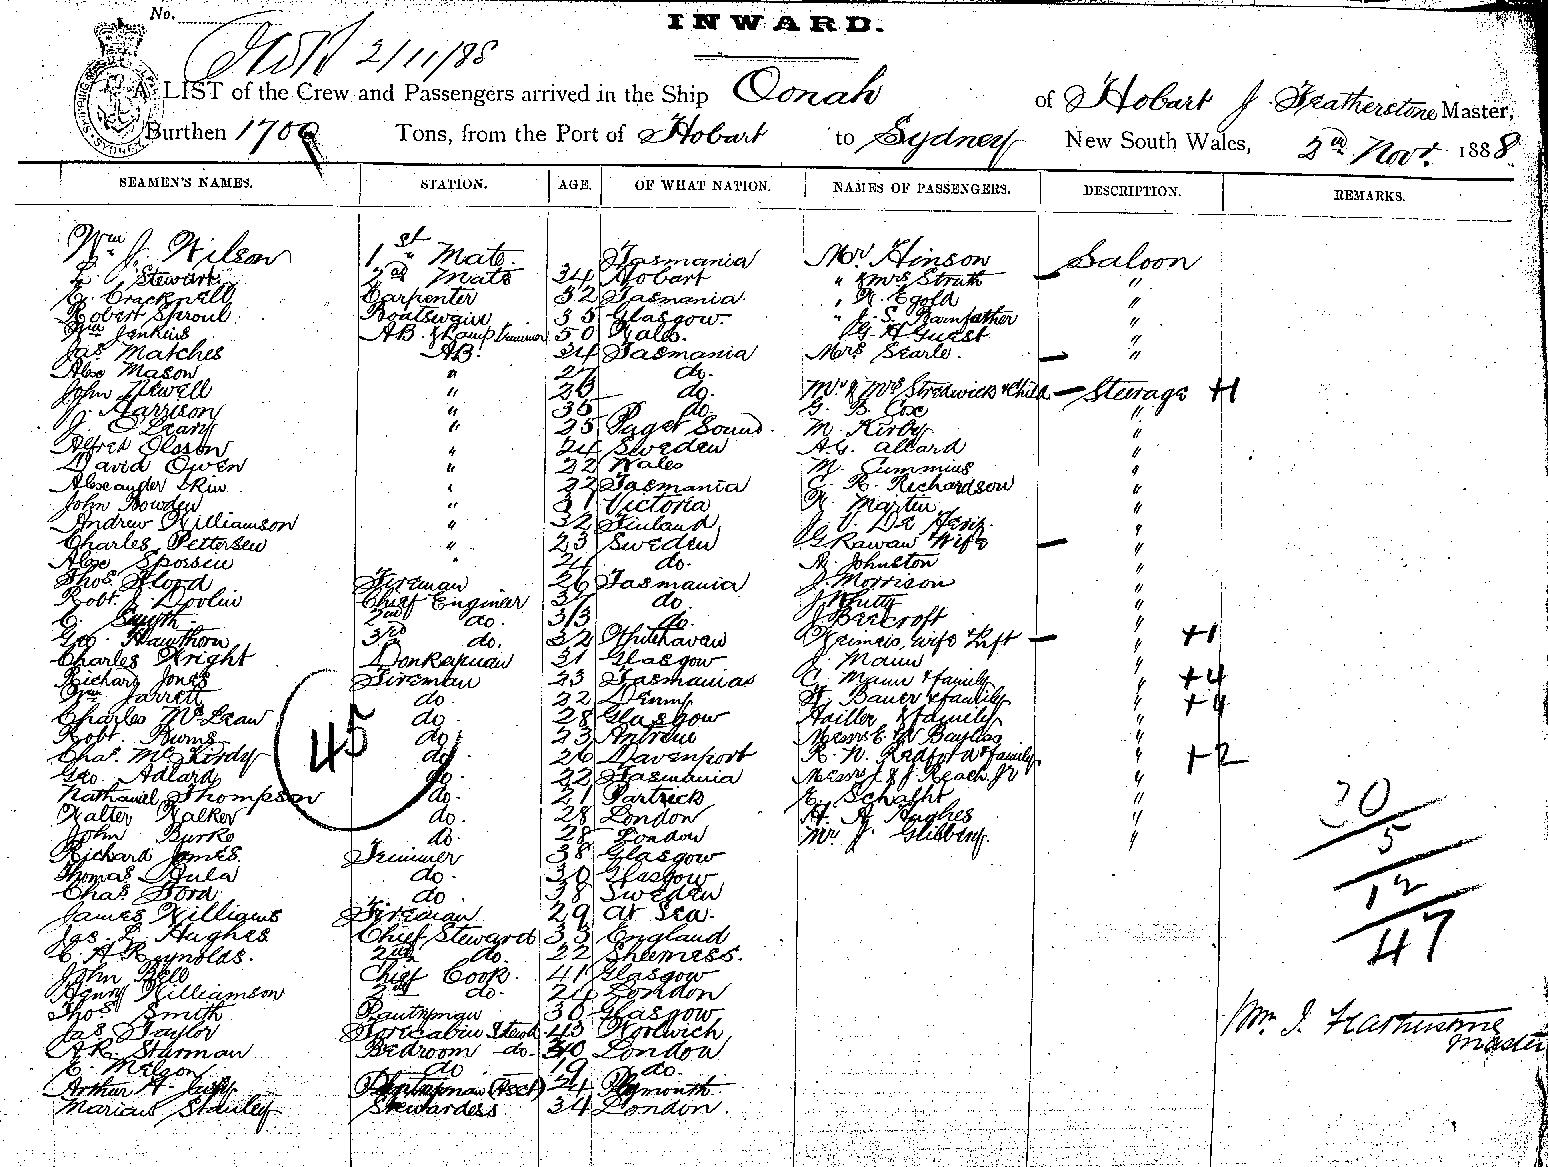 No.
INWARD.
2/11/88
A LIST of the Crew and Passengers arrived in the Ship Oonah of Hobart J. Featherstone Master,
Burthen 1709 Tons, from the Port of Hobart to Sydney New South Wales, 2nd Novr. 1888
SEAMEN'S NAMES. STATION. AGE. OF WHAT NATION. NAMES OF PASSENGERS. DESCRIPTION. REMARKS.
Wm J. Wilson 1st Mate. Tasmania Mr Hinson Saloon
Stewart 2nd Mate 34 Hobart " & Mrs Struth "
Cracknell Carpenter 32 Tasmania " Egold "
Robert Sproul Boatswain 35 Glasgow. " J. S. Rainfather "
Wm Jenkins AB & Lamp trimmer 50 Wales. G. H. Guest "
Jas Matches AB. 34 Tasmania Mrs Searle. "
Alex Mason " 27 do.
John Newell " 23 do. Mr & Mrs Stredwick & Child Steerage +1
J. Harrison " 35 do G. B. Cox "
J. O'Leary " 25 Puget Sound. M. Kirby "
Alfred Olsson " 24 Sweden A.G. Allard "
David Owen " 22 Wales M. Cummins "
Alexander Skiw " 22 Tasmania C. R. Richardson "
John Bowden " 31 Victoria Martin "
Andrew Williamson " 32 Finland "
Charles Pettersen " 23 Sweden G Rawan Wife "
Alex Spossew " 24 do. A. Johnston "
Thos Flood Fireman 26 Tasmania J. Morrison "
Robt J. Dovlin Chief Engineer 37 do J Whitty "
Smith 2nd do. 33 do. J Beecroft "
Geo Hawthorn 3rd do. 32 Whitehaven wife & "  +1
Charles Wright Donkeyman 31 Glasgow J. Mann "
Richard Jones Fireman 23 Tasmania C. Mann & family " +4
Wm Jarrett do 22 Bauer & family " +4
Charles McLean do 28 Glasgow Hailler & family "
Robt. Burns do 23 Messrs E W Bayliss "
Chas. McKirdy do 26 Davenport R. N. Redford & family " +2
Geo. Adlard do 22 Tasmania Messrs J & J Reach Jr "
Nathaniel Thompson do. 21 Partrick E. Schafht "
Walter Walker do. 28 London H. A. Hughes "
John Burke do. 28 London Mr J. Glibbing. "
Richard James. Trimmer 38 Glasgow
Thomas do. 30 Glasgow
Chas. Ford do 38 Sweden
James Williams Fireman 29 at Sea.
Jas. L. Hughes Chief Steward 33 England
C. A Reynolds. 2nd do. 22 Sheerness.
John Bell Chief Cook. 41 Glasgow
Henry Williamson 2nd do. 24 London
Thos Smith Pantryman 30 Glasgow
Jas Taylor Forecabin Stewd 43 Norwich
A.R. Sturman Bedroom do. 30 London
E. Melson do 19 do.
Arthur H. Pantryman (Asst) 24 Plymouth
Marian Stanley Stewardess 34 London.
45
30
5
12
47
Wm J. Featherstone
Master